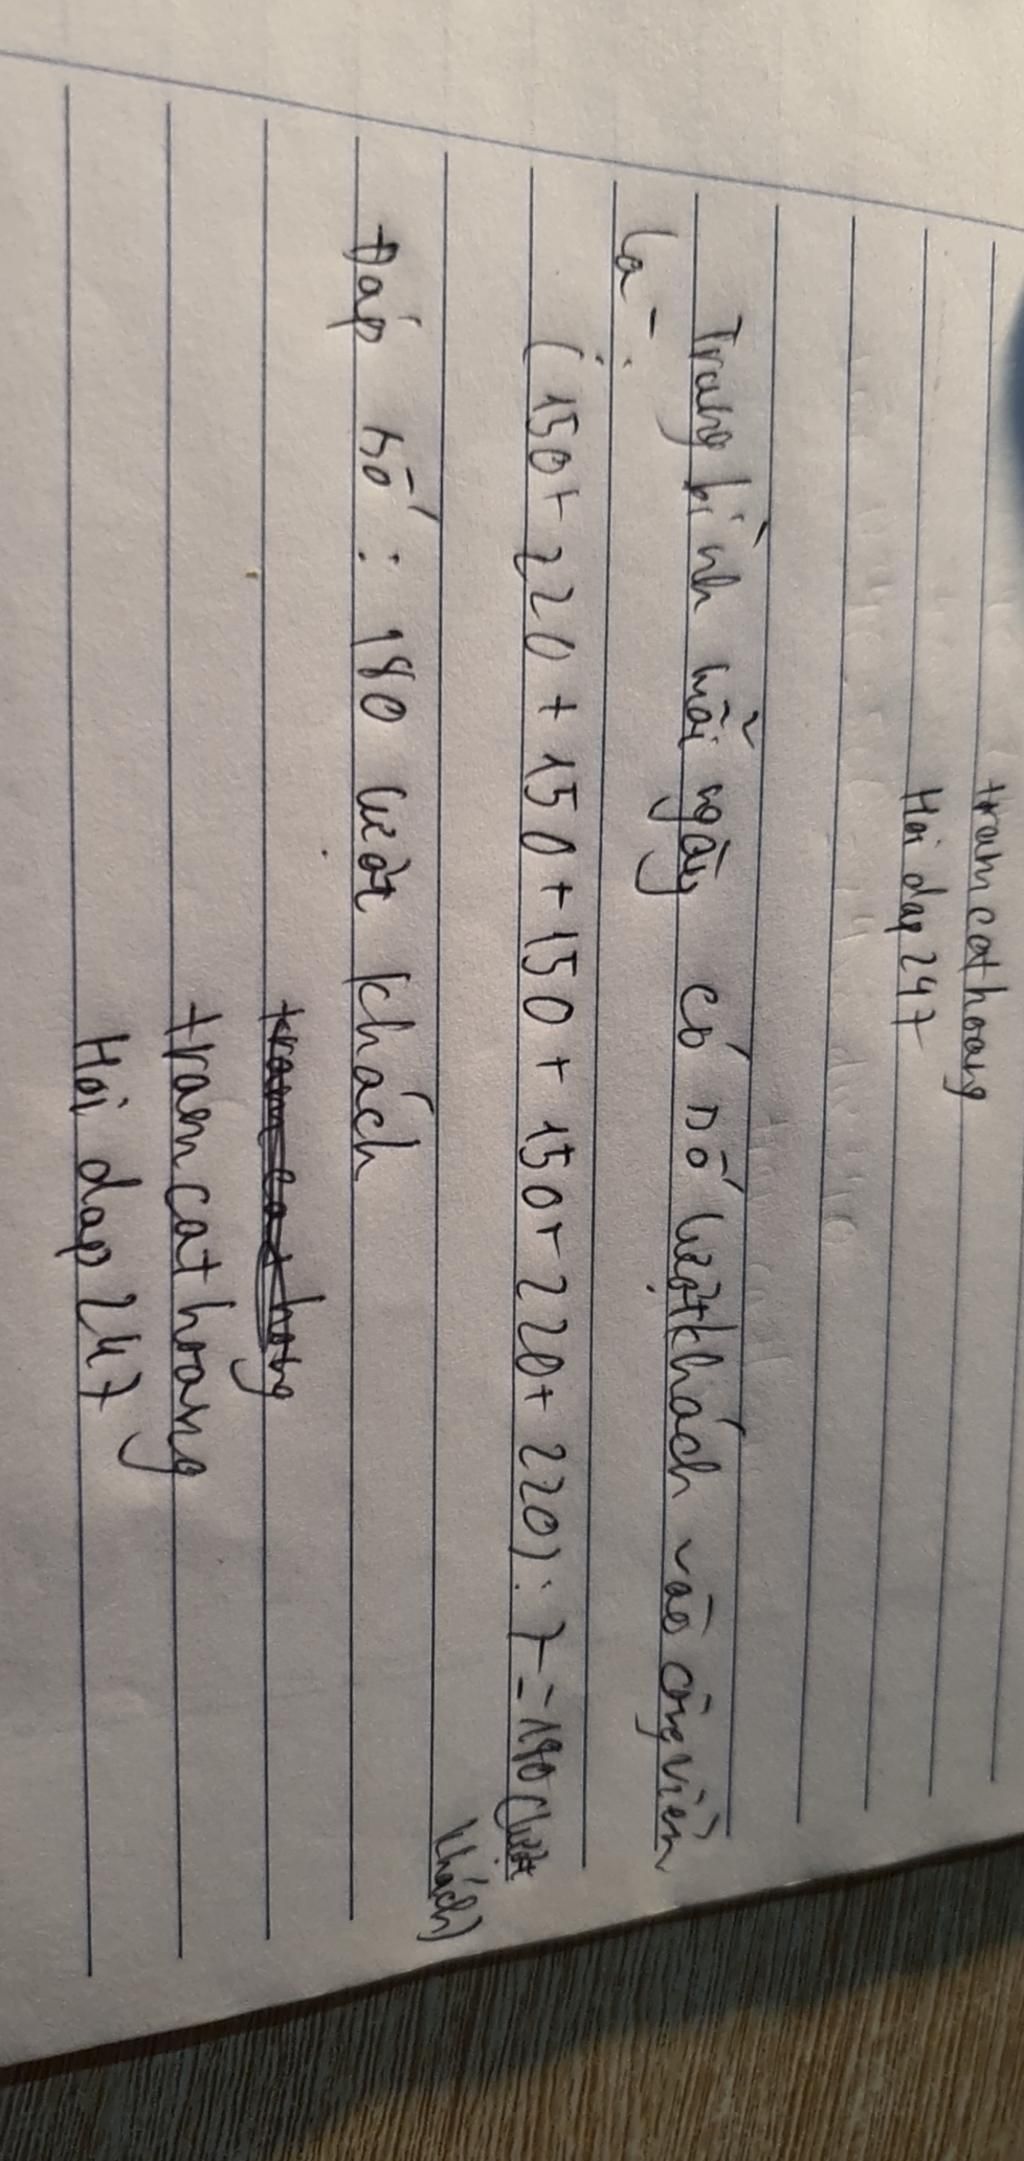 tramcathoang
Hoi dap 247
Trung bình mỗi ngày có số lượt khách vào công viên
là:
(150+220+150+150+150+220+220):7=180(lượt
khách)
Đáp số: 180 lượt khách
tramcathoang
tramcathoang
Hoi dap 247